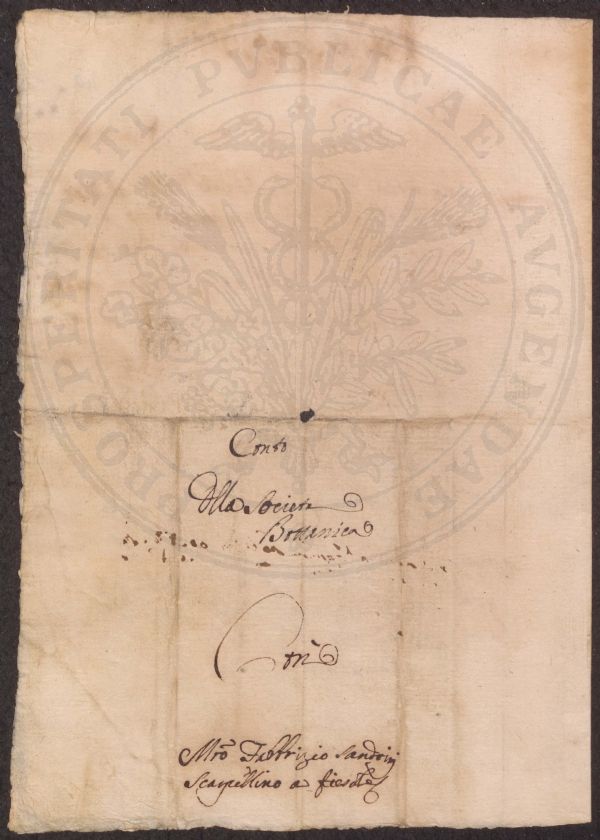 PROSPERITATI PVBLICAE AVGENDAE
Conto
Della Societa
Bottanica
Con
Mro Fabbrizio Sandrini
Scarpellino a fiesole